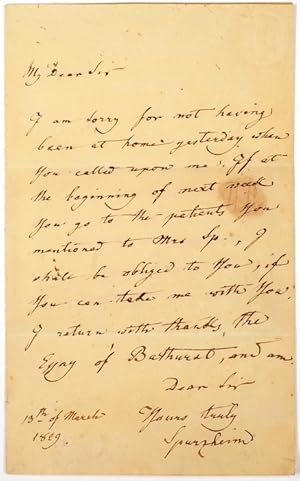 My Dear Sir
I am sorry for not having
been at home yesterday when
You called upon me. If at
the beginning of next week
You go to the patients You
mentioned to Mrs Sp., I
shall be obliged to You, if
You can take me with You.
I return with thanks, the
of Bathurst, and am
Dear Sir
13th of March
Yours truly
Spurzheim